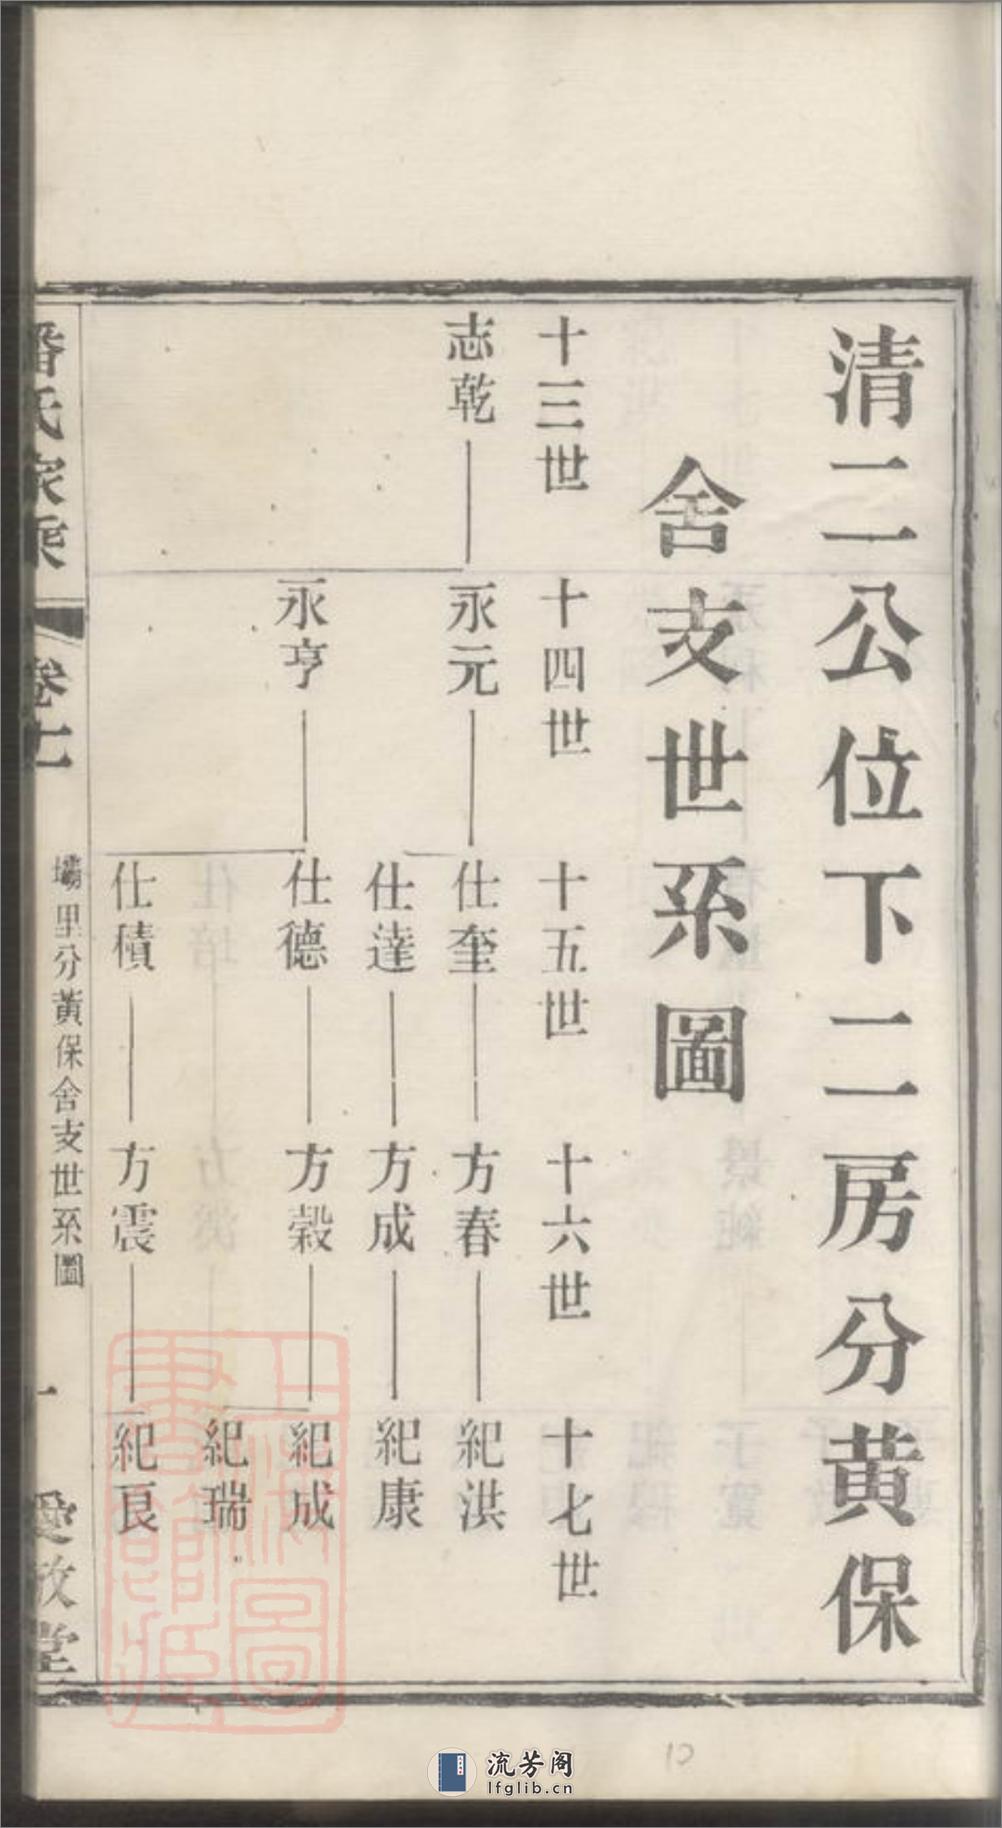 清二公位下二房分黃保
舍支世系圖
十三世
十四世
十五世
十六世
十七世
志乾
永元
仕奎
方春
紀洪
仕達
方成
紀康
永亨
仕德
方穀
紀成
紀瑞
仕積
方震
紀良
潘氏家乘
卷十一
壩里分黃保舍支世系圖
一
愛敬堂
上海圖書館藏
10
流芳阁
lfglib.cn